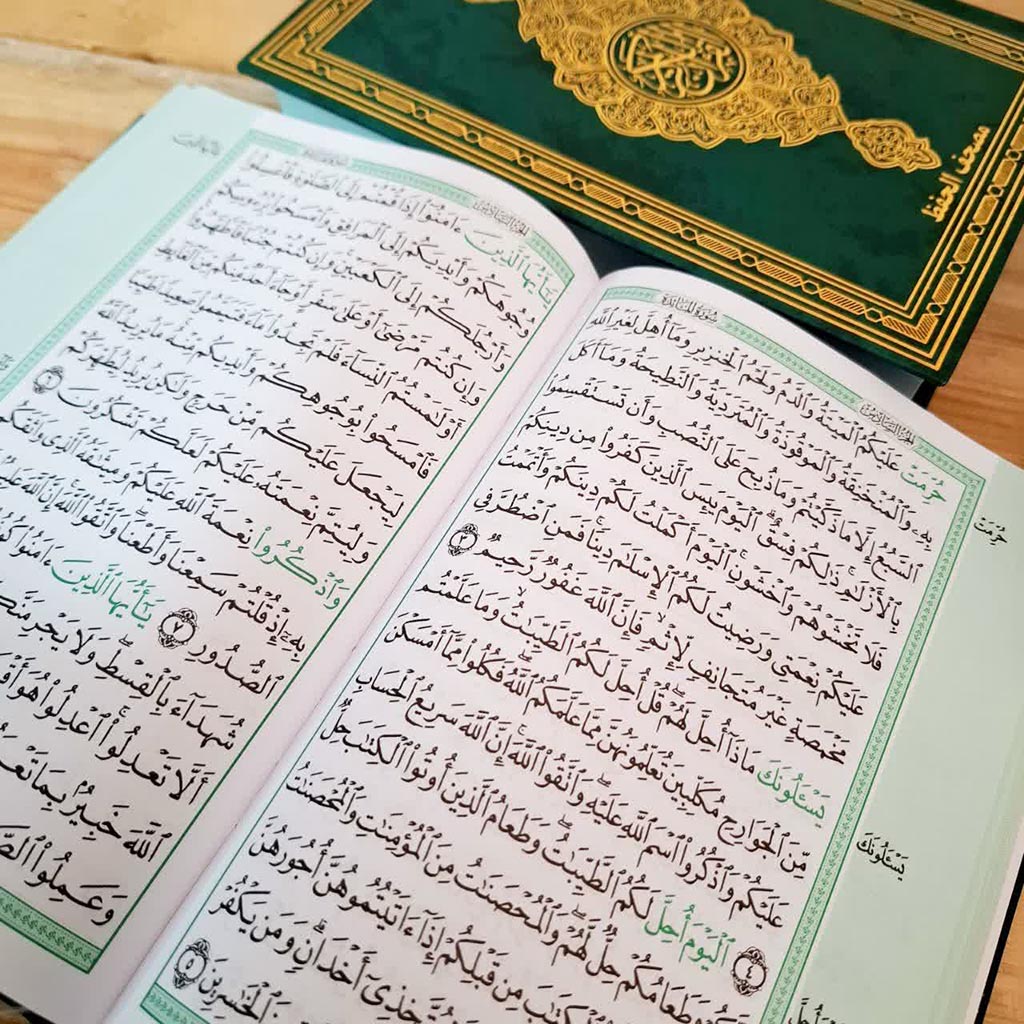 سُورَةُ المَائِدَةِ
الجُزْءُ السَّادِسُ
حُرِّمَتْ عَلَيْكُمُ ٱلْمَيْتَةُ وَٱلدَّمُ وَلَحْمُ ٱلْخِنزِيرِ وَمَآ أُهِلَّ لِغَيْرِ ٱللَّهِ
بِهِۦ وَٱلْمُنْخَنِقَةُ وَٱلْمَوْقُوذَةُ وَٱلْمُتَرَدِّيَةُ وَٱلنَّطِيحَةُ وَمَآ أَكَلَ
ٱلسَّبُعُ إِلَّا مَا ذَكَّيْتُمْ وَمَا ذُبِحَ عَلَى ٱلنُّصُبِ وَأَن تَسْتَقْسِمُوا۟
بِٱلْأَزْلَٰمِ ۚ ذَٰلِكُمْ فِسْقٌ ۗ ٱلْيَوْمَ يَئِسَ ٱلَّذِينَ كَفَرُوا۟ مِن دِينِكُمْ
فَلَا تَخْشَوْهُمْ وَٱخْشَوْنِ ۚ ٱلْيَوْمَ أَكْمَلْتُ لَكُمْ دِينَكُمْ وَأَتْمَمْتُ
عَلَيْكُمْ نِعْمَتِى وَرَضِيتُ لَكُمُ ٱلْإِسْلَٰمَ دِينًا ۚ فَمَنِ ٱضْطُرَّ فِى
مَخْمَصَةٍ غَيْرَ مُتَجَانِفٍ لِّإِثْمٍ ۙ فَإِنَّ ٱللَّهَ غَفُورٌ رَّحِيمٌ ٣
يَسْـَٔلُونَكَ مَاذَآ أُحِلَّ لَهُمْ ۖ قُلْ أُحِلَّ لَكُمُ ٱلطَّيِّبَٰتُ ۙ وَمَا عَلَّمْتُم
مِّنَ ٱلْجَوَارِحِ مُكَلِّبِينَ تُعَلِّمُونَهُنَّ مِمَّا عَلَّمَكُمُ ٱللَّهُ ۖ فَكُلُوا۟ مِمَّآ أَمْسَكْنَ
عَلَيْكُمْ وَٱذْكُرُوا۟ ٱسْمَ ٱللَّهِ عَلَيْهِ ۖ وَٱتَّقُوا۟ ٱللَّهَ ۚ إِنَّ ٱللَّهَ سَرِيعُ ٱلْحِسَابِ
٤ ٱلْيَوْمَ أُحِلَّ لَكُمُ ٱلطَّيِّبَٰتُ ۖ وَطَعَامُ ٱلَّذِينَ أُوتُوا۟ ٱلْكِتَٰبَ حِلٌّ
لَّكُمْ وَطَعَامُكُمْ حِلٌّ لَّهُمْ ۖ وَٱلْمُحْصَنَٰتُ مِنَ ٱلْمُؤْمِنَٰتِ وَٱلْمُحْصَنَٰتُ
ٱلْكِتَٰبَ مِن قَبْلِكُمْ إِذَآ ءَاتَيْتُمُوهُنَّ أُجُورَهُنَّ
مُتَّخِذِىٓ أَخْدَانٍ ۗ وَمَن يَكْفُرْ
ٱلْخَٰسِرِينَ ٥
حُرِّمَتْ
يَسْـَٔلُونَكَ
الجُزْءُ السَّادِسُ
يَٰٓأَيُّهَا ٱلَّذِينَ ءَامَنُوٓا۟ إِذَا قُمْتُمْ إِلَى ٱلصَّلَوٰةِ فَٱغْسِلُوا۟
وُجُوهَكُمْ وَأَيْدِيَكُمْ إِلَى ٱلْمَرَافِقِ وَٱمْسَحُوا۟ بِرُءُوسِكُمْ
وَأَرْجُلَكُمْ إِلَى ٱلْكَعْبَيْنِ ۚ وَإِن كُنتُمْ جُنُبًا فَٱطَّهَّرُوا۟ ۚ
وَإِن كُنتُم مَّرْضَىٰٓ أَوْ عَلَىٰ سَفَرٍ أَوْ جَآءَ أَحَدٌ مِّنكُم مِّنَ ٱلْغَآئِطِ
أَوْ لَٰمَسْتُمُ ٱلنِّسَآءَ فَلَمْ تَجِدُوا۟ مَآءً فَتَيَمَّمُوا۟ صَعِيدًا طَيِّبًا
فَٱمْسَحُوا۟ بِوُجُوهِكُمْ وَأَيْدِيكُم مِّنْهُ ۚ مَا يُرِيدُ ٱللَّهُ
لِيَجْعَلَ عَلَيْكُم مِّنْ حَرَجٍ وَلَٰكِن يُرِيدُ لِيُطَهِّرَكُمْ
وَلِيُتِمَّ نِعْمَتَهُۥ عَلَيْكُمْ لَعَلَّكُمْ تَشْكُرُونَ ٦
وَٱذْكُرُوا۟ نِعْمَةَ ٱللَّهِ عَلَيْكُمْ وَمِيثَٰقَهُ ٱلَّذِى وَاثَقَكُم
بِهِۦٓ إِذْ قُلْتُمْ سَمِعْنَا وَأَطَعْنَا ۖ وَٱتَّقُوا۟ ٱللَّهَ ۚ إِنَّ ٱللَّهَ عَلِيمٌ
ٱلصُّدُورِ ٧ يَٰٓأَيُّهَا ٱلَّذِينَ ءَامَنُوا۟ كُونُوا۟
شُهَدَآءَ بِٱلْقِسْطِ ۖ وَلَا يَجْرِمَنَّكُمْ
أَلَّا تَعْدِلُوا۟ ۚ ٱعْدِلُوا۟ هُوَ
ٱللَّهَ خَبِيرٌۢ بِمَا
وَعَمِلُوا۟
مصحف الحفظ